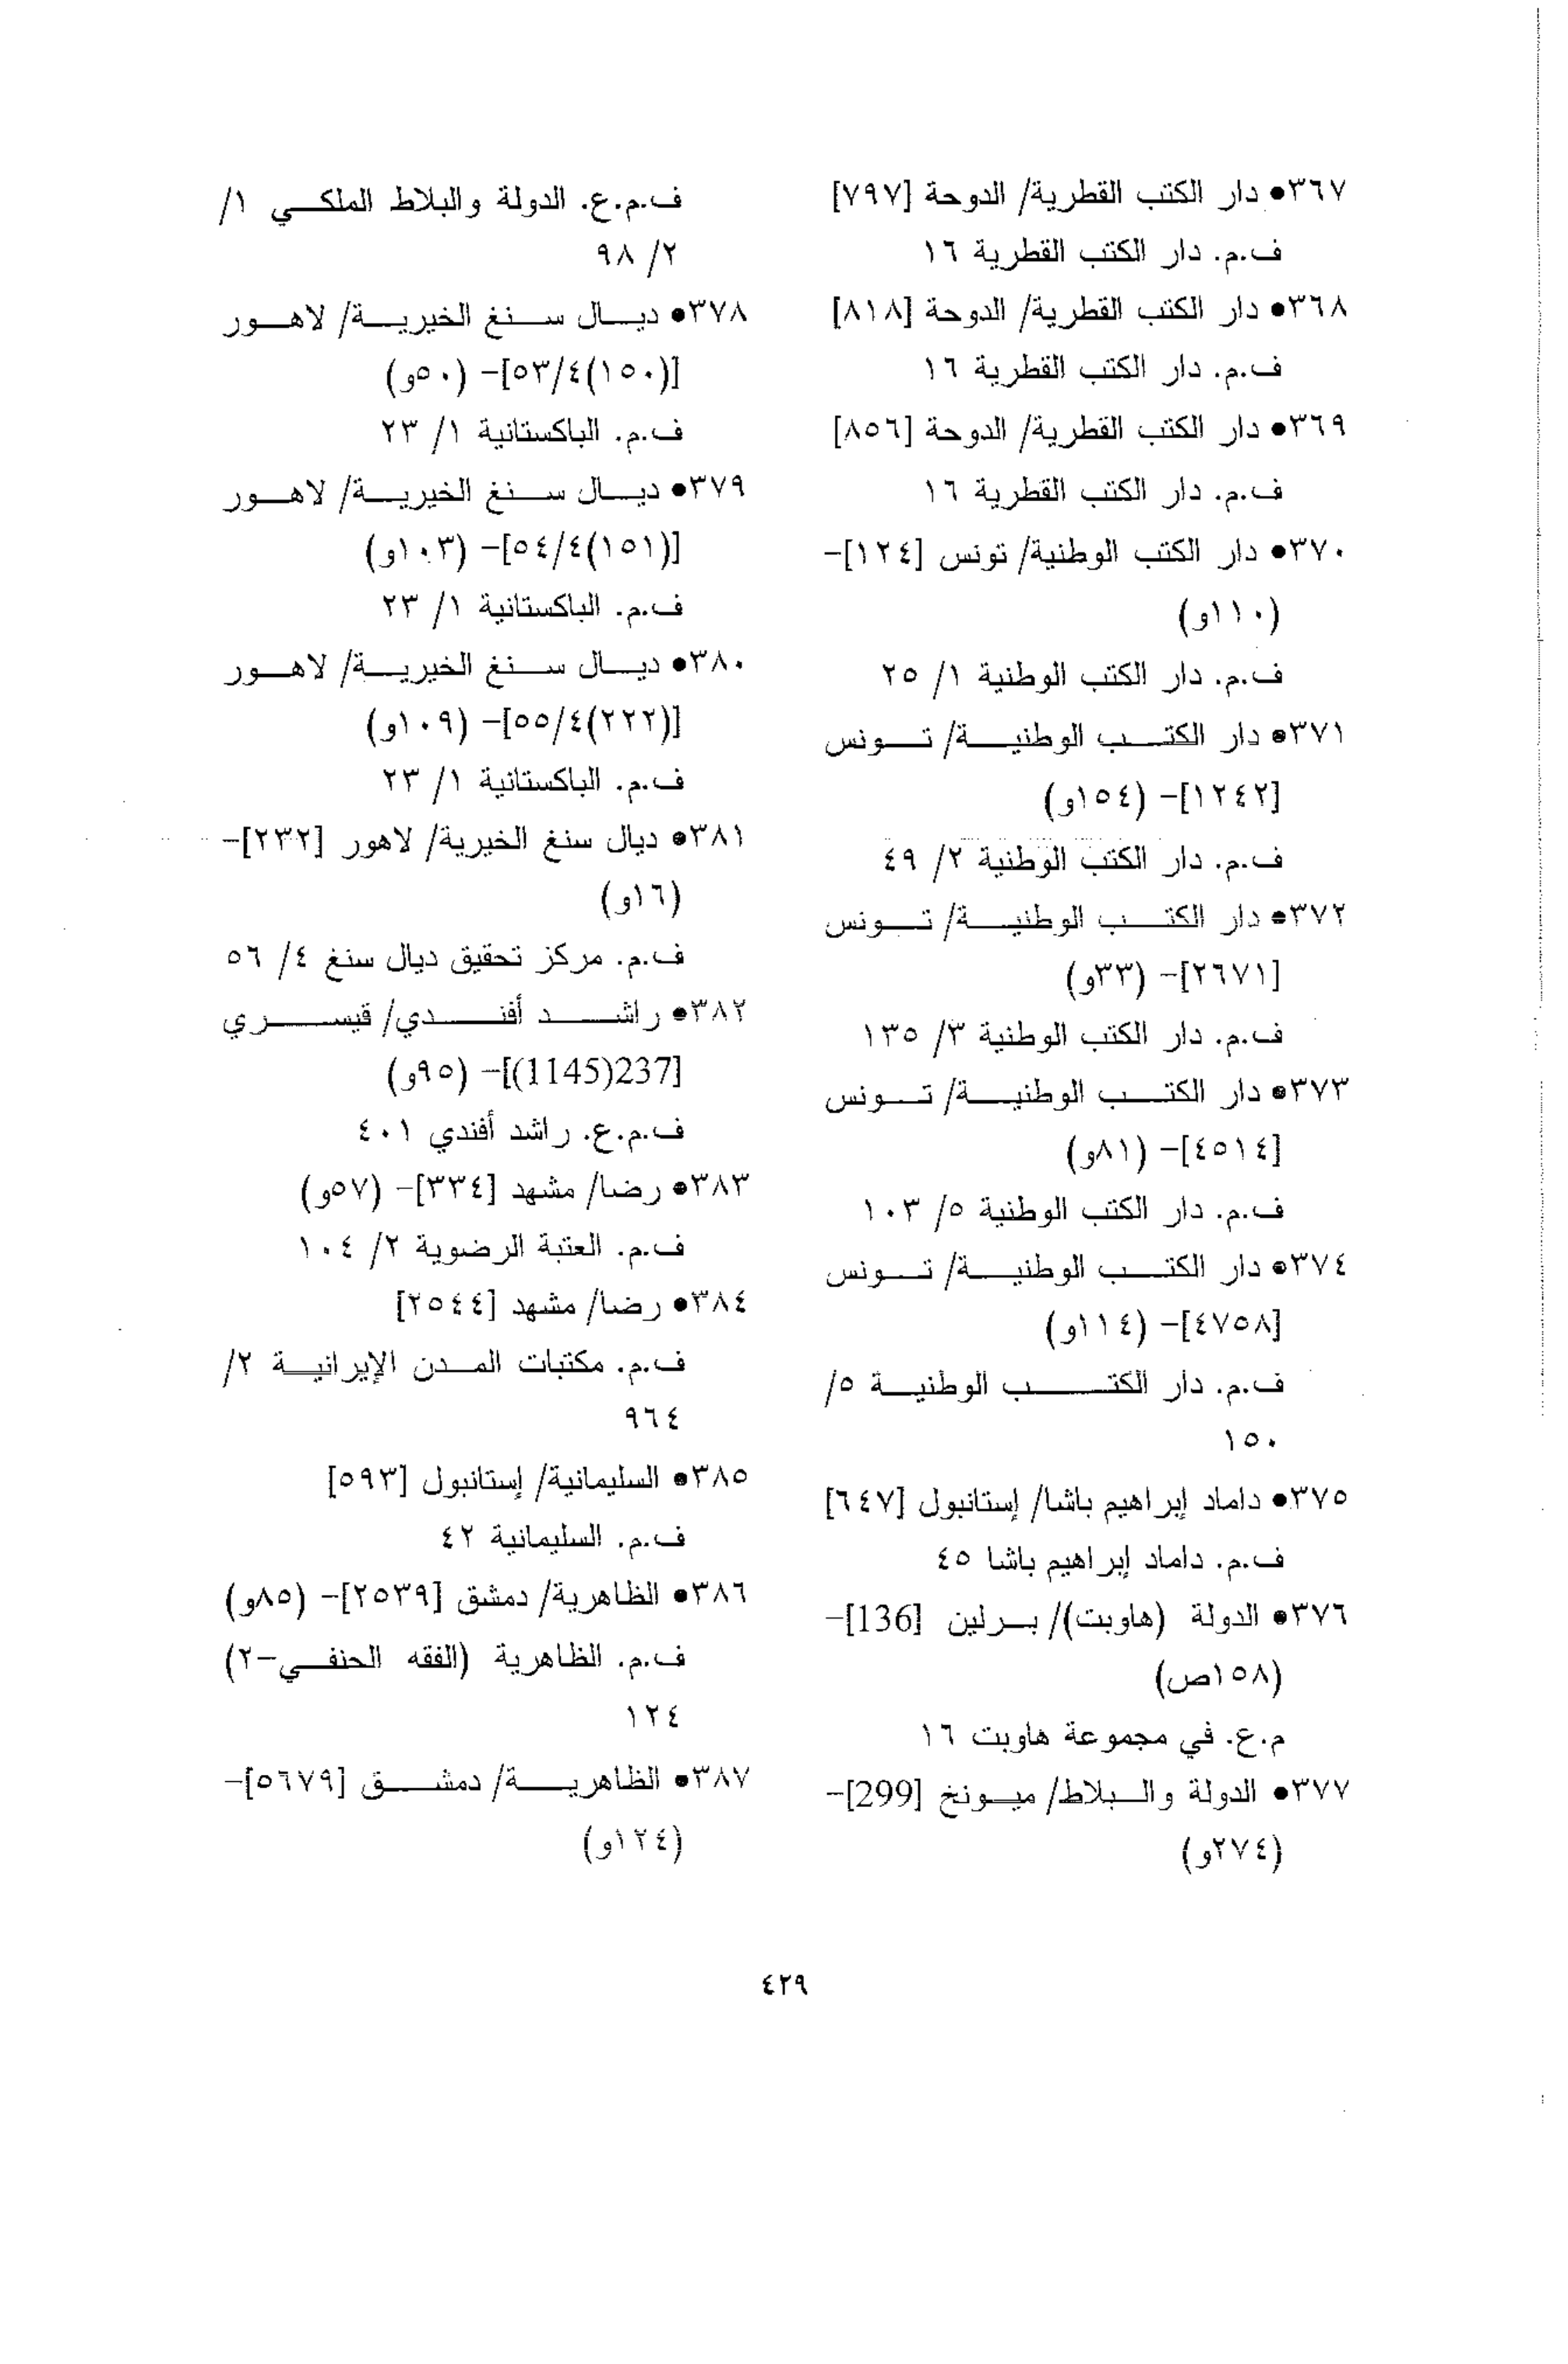 ٣٦٧● دار الكتب القطرية/ الدوحة [٧٩٧]
ف.م. دار الكتب القطرية ١٦
٣٦٨● دار الكتب القطرية/ الدوحة [٨١٨]
ف.م. دار الكتب القطرية ١٦
٣٦٩● دار الكتب القطرية/ الدوحة [٨٥٦]
ف.م. دار الكتب القطرية ١٦
٣٧٠● دار الكتب الوطنية/ تونس [١٢٤]-
(١١٠و)
ف.م. دار الكتب الوطنية ١/ ٢٥
٣٧١● دار الكتب الوطنية/ تونس
[١٢٤٢]- (١٥٤و)
ف.م. دار الكتب الوطنية ٢/ ٤٩
٣٧٢● دار الكتب الوطنية/ تونس
[٢٦٧١]- (٣٣و)
ف.م. دار الكتب الوطنية ٣/ ١٣٥
٣٧٣● دار الكتب الوطنية/ تونس
[٤٥١٤]- (٨١و)
ف.م. دار الكتب الوطنية ٥/ ١٠٣
٣٧٤● دار الكتب الوطنية/ تونس
[٤٧٥٨]- (١١٤و)
ف.م. دار الكتب الوطنية ٥/
١٥٠
٣٧٥● داماد إبراهيم باشا/ إستانبول [٦٤٧]
ف.م. داماد إبراهيم باشا ٤٥
٣٧٦● الدولة (هاوبت)/ برلين [136]-
(١٥٨ص)
م.ع. في مجموعة هاوبت ١٦
٣٧٧● الدولة والبلاط/ ميونخ [299]-
(٢٧٤و)
ف.م.ع. الدولة والبلاط الملكي ١/
٢/ ٩٨
٣٧٨● ديال سنغ الخيرية/ لاهور
[(١٥٠)٥٣/٤]- (٥٠و)
ف.م. الباكستانية ١/ ٢٣
٣٧٩● ديال سنغ الخيرية/ لاهور
[(١٥١)٥٤/٤]- (١٠٣و)
ف.م. الباكستانية ١/ ٢٣
٣٨٠● ديال سنغ الخيرية/ لاهور
[(٢٢٢)٥٥/٤]- (١٠٩و)
ف.م. الباكستانية ١/ ٢٣
٣٨١● ديال سنغ الخيرية/ لاهور [٢٣٢]-
(١٦و)
ف.م. مركز تحقيق ديال سنغ ٤/ ٥٦
٣٨٢● راشد أفندي/ قيسري
[237(1145)]- (٩٥و)
ف.م.ع. راشد أفندي ٤٠١
٣٨٣● رضا/ مشهد [٣٣٤]- (٥٧و)
ف.م. العتبة الرضوية ٢/ ١٠٤
٣٨٤● رضا/ مشهد [٢٥٤٤]
ف.م. مكتبات المدن الإيرانية ٢/
٩٦٤
٣٨٥● السليمانية/ إستانبول [٥٩٣]
ف.م. السليمانية ٤٢
٣٨٦● الظاهرية/ دمشق [٢٥٣٩]- (٨٥و)
ف.م. الظاهرية (الفقه الحنفي-٢)
١٢٤
٣٨٧● الظاهرية/ دمشق [٥٦٧٩]-
(١٢٤و)
٤٢٩